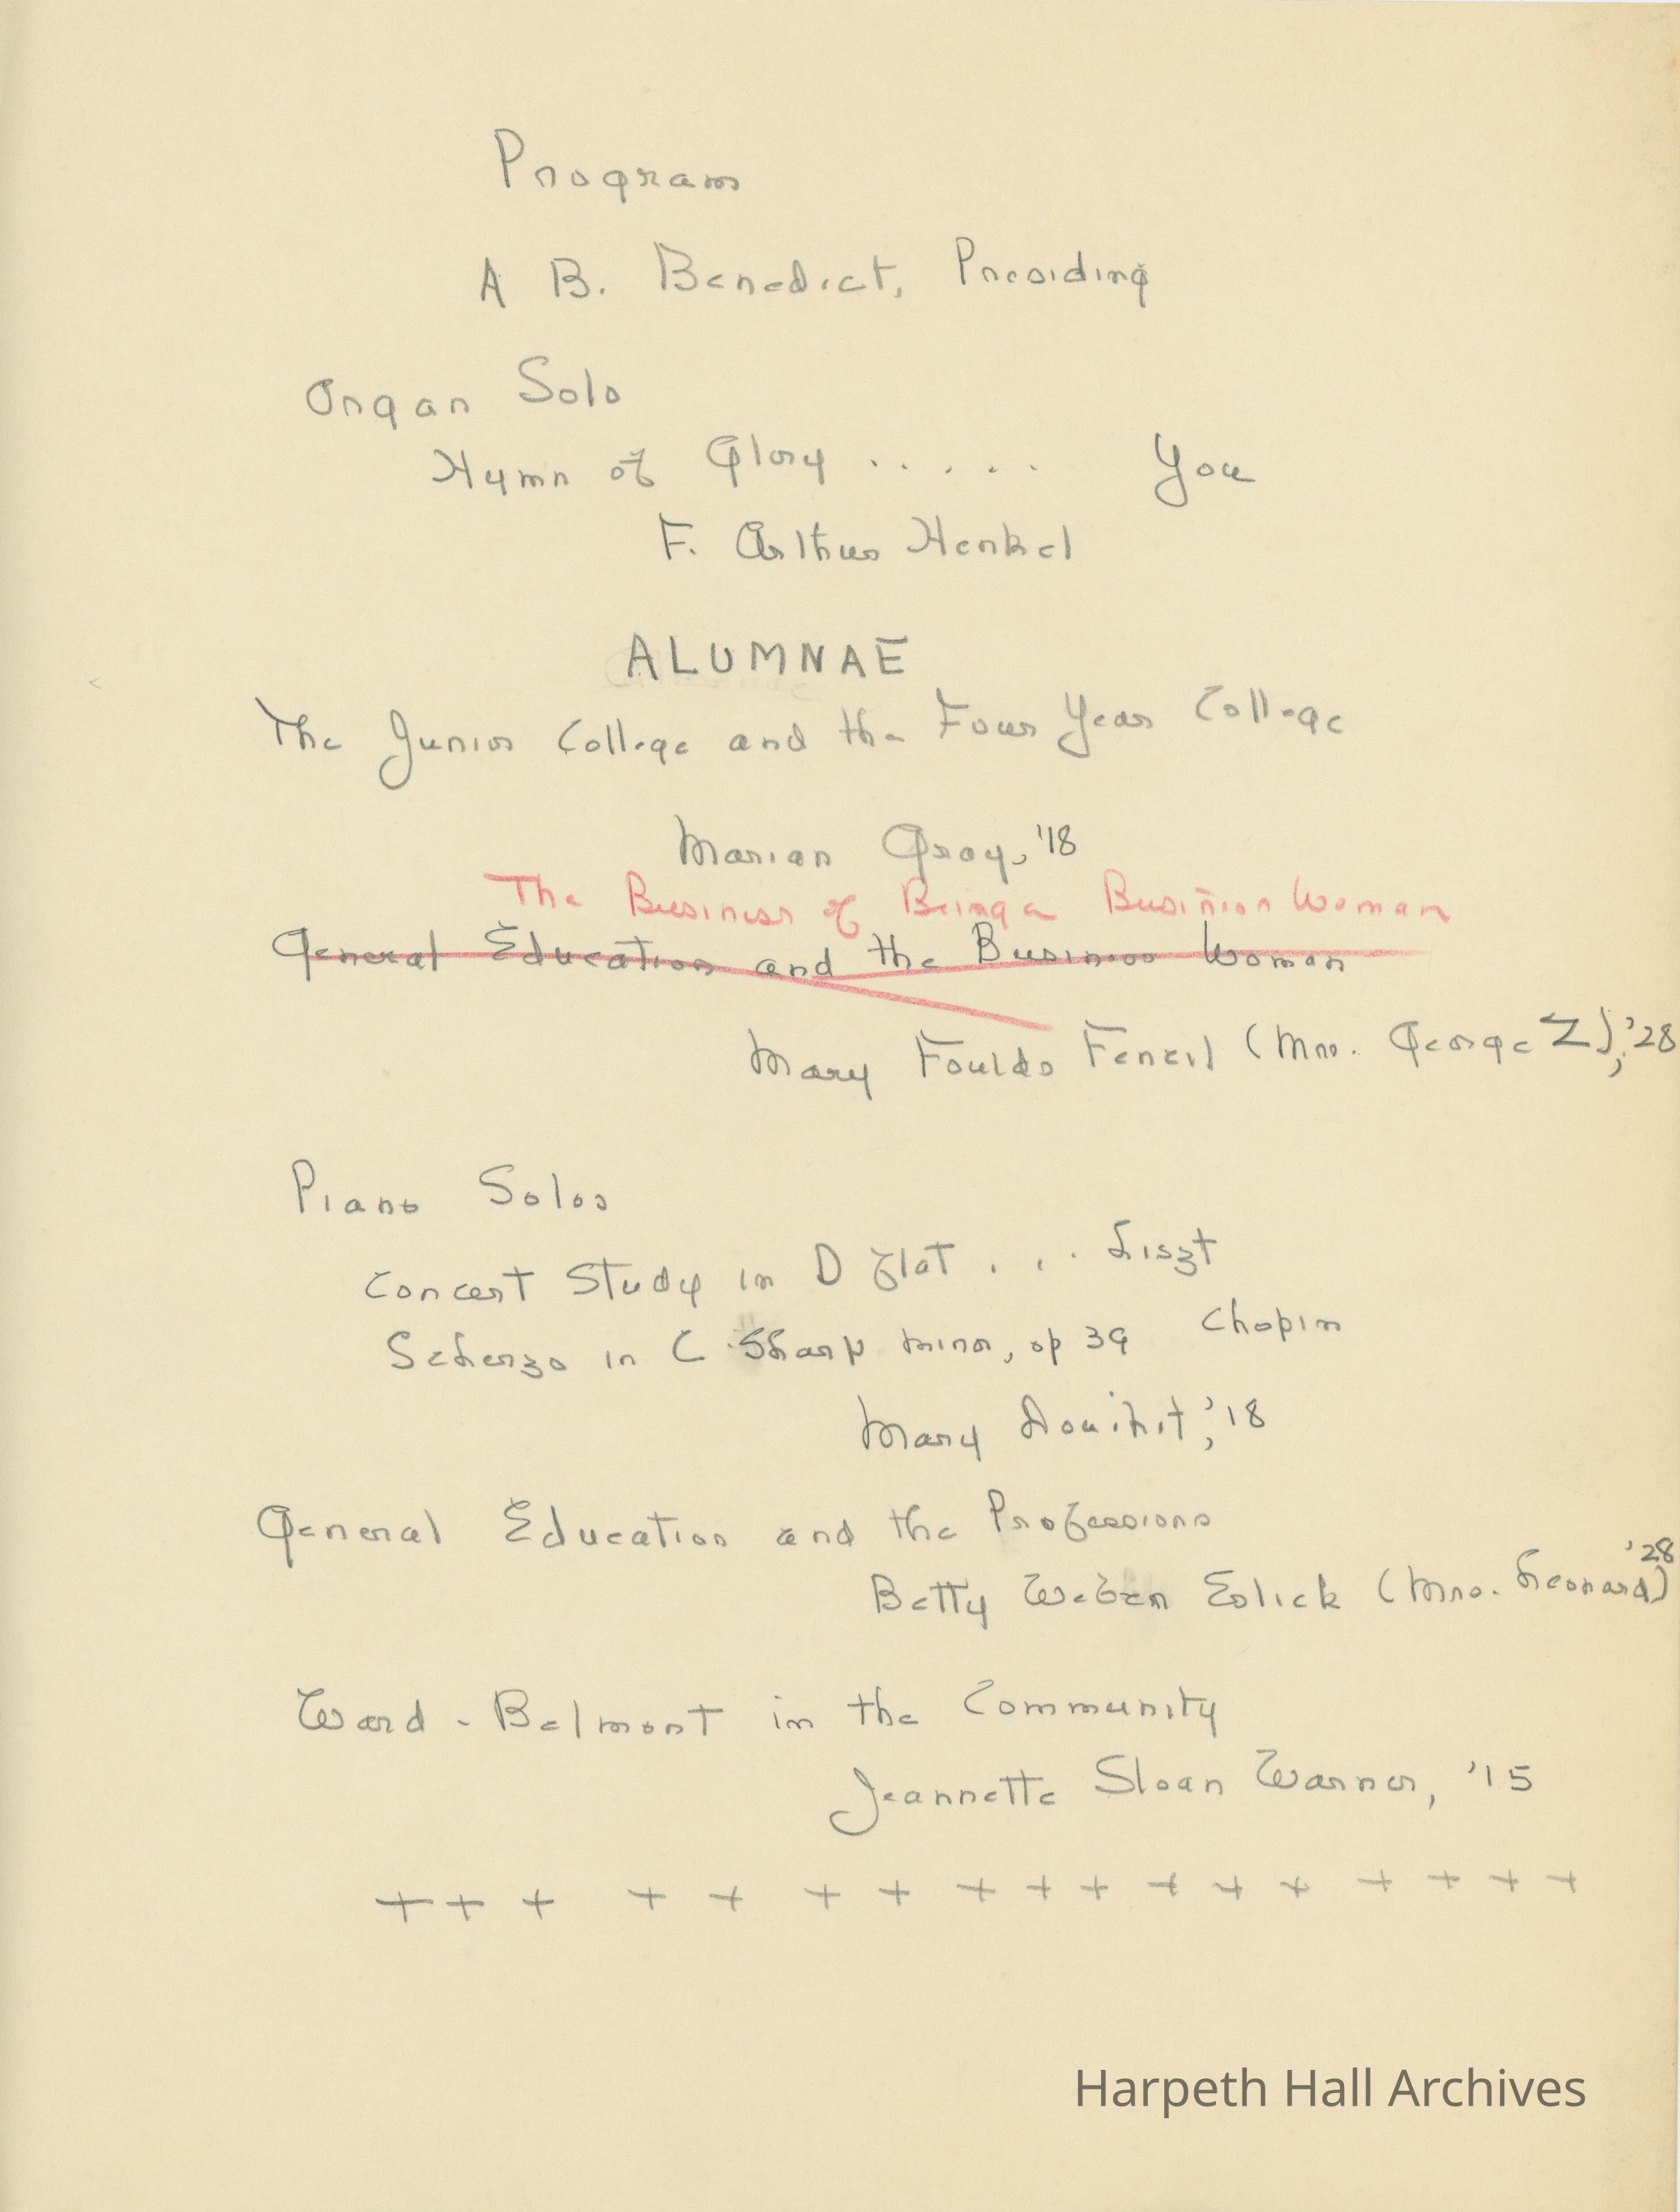 Program
A B. Benedict, Presiding
Organ Solo
Hymn of Glory ..... You
F. Arthur Henkel
ALUMNAE
The Junior College and the Four Year College
Marian Gray, '18
The Business of Being a Business Woman
General Education and the Business Woman
Mary Foulds (Mrs. George Z), '28
Piano Solos
Concert Study in D flat ... Liszt
Scherzo in C Sharp minor, op 39 Chopin
Mary Douthit, '18
General Education and the Professions
'28
Betty Weber Eslick (Mrs. Leonard)
Ward-Belmont in the Community
Jeannette Sloan Warner, '15
+ + + + + + + + + + + + + + + + +
Harpeth Hall Archives